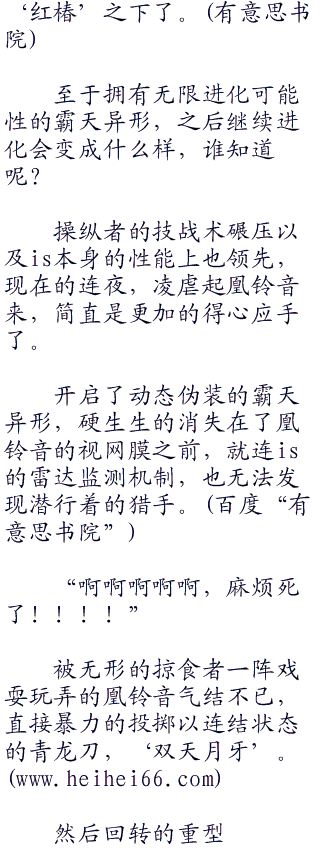 ‘红椿’之下了。(有意思书
院)
至于拥有无限进化可能
性的霸天异形，之后继续进
化会变成什么样，谁知道
呢？
操纵者的技战术碾压以
及is本身的性能上也领先，
现在的连夜，凌虐起凰铃音
来，简直是更加的得心应手
了。
开启了动态伪装的霸天
异形，硬生生的消失在了凰
铃音的视网膜之前，就连is
的雷达监测机制，也无法发
现潜行着的猎手。(百度“有
意思书院”)
“啊啊啊啊啊，麻烦死
了！！！！”
被无形的掠食者一阵戏
耍玩弄的凰铃音气结不已，
直接暴力的投掷以连结状态
的青龙刀，‘双天月牙’。
(www.heihei66.com)
然后回转的重型